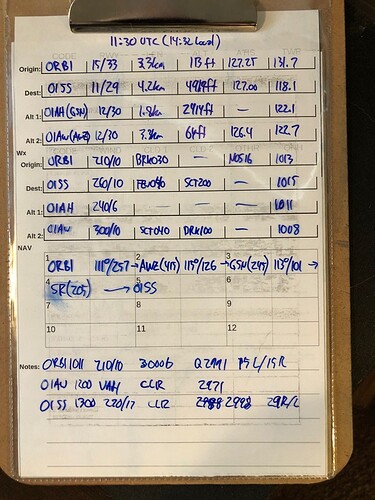 11:30 UTC (14:32 Local)
CODE RWY ALT TWR
Origin: ORBI 15/33 3.3km 113ft 127.25 131.7
Dest: OISS 11/29 4.2km 4919ft 127.00 118.1
Alt 1: OIAH(GSN) 12/30 1.8km 2414ft — 122.1
Alt 2: OIAW(AWZ) 12/30 3.3km 61ft 126.4 122.7
Wx WIND CLD 1 CLD 2 OTHR QNH
Origin: ORBI 210/10 BRK030 — MOS16 1013
Dest: OISS 260/10 FEW046 SCT200 — 1015
Alt 1: OIAH 240/6 — — — 1011
Alt 2: OIAW 300/10 SCT040 BRK100 1008
NAV
1 2 3
ORBI 111°/257 → AWZ(415) 115°/126 → GSN(245) 113°/101 →
4 5 6
SR(205) → OISS
7 8 9
10 11 12
Notes: ORBI 1011 210/10 30006 Q2991 15L/15R
OIAW 1200 CLR 2971
OISS 1300 220/17 CLR 2988 2998 29R/L